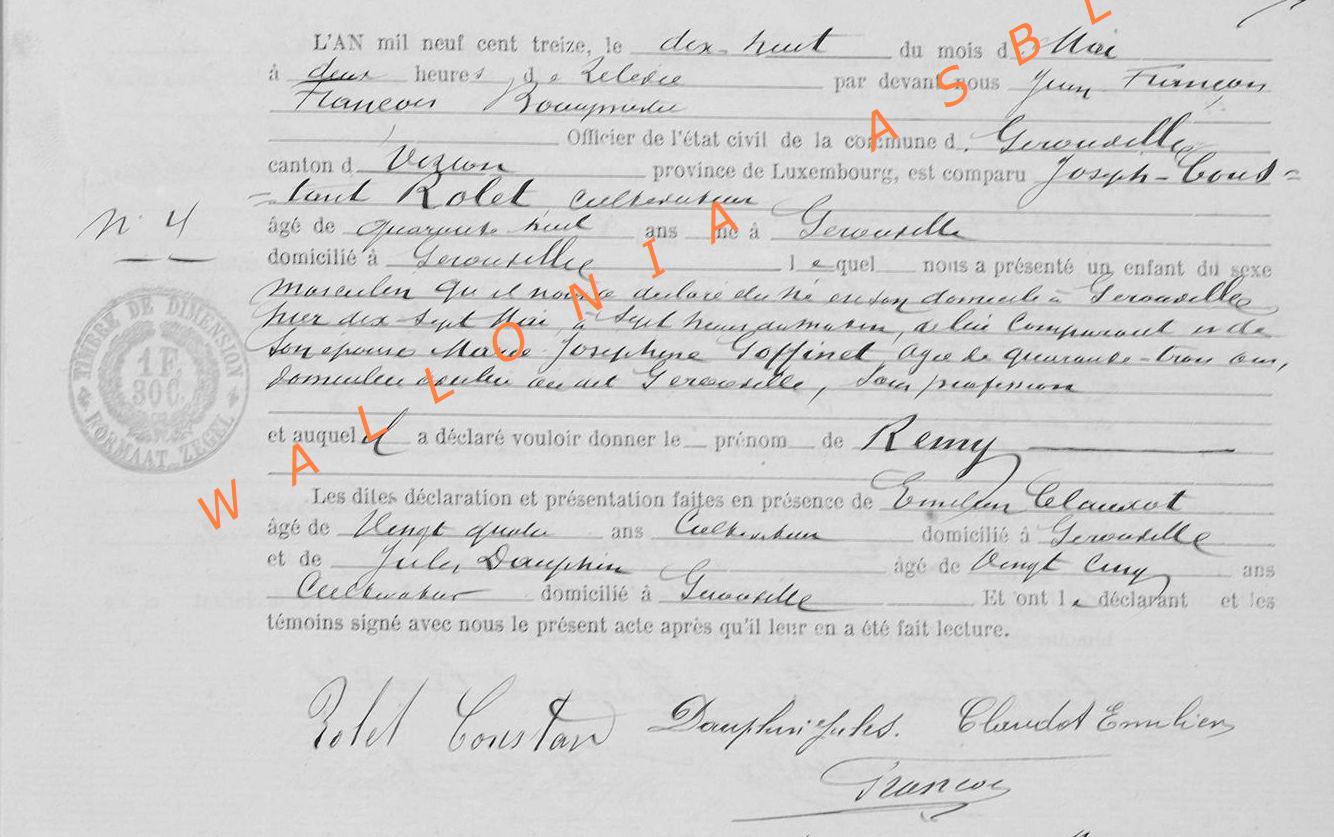 L'AN mil neuf cent treize, le dix-huit du mois d Mai
à deux heures de Relevée par devant nous Jean François
François Bourgmestre
Officier de l'état civil de la commune d. Gerouville
canton d Virton province de Luxembourg, est comparu Joseph-Cons=
=tant Rolet cultivateur
N° 4
âgé de quarante huit ans né à Gerouville
domicilié à Gerouville lequel nous a présenté un enfant du sexe
masculin qu'il nous a declaré être né en son domicile à Gerouville
hier dix-sept Mai, à sept heures du matin, de lui comparant et de
son epouse Marie Josephine Goffinet, agée de quarante-trois ans,
domiciliée audit Gerouville, sans profession
et auquel il a déclaré vouloir donner le prénom de Remy
Les dites déclaration et présentation faites en présence de Emilien Claudot
âgé de Vingt quatre ans Cultivateur domicilié à Gerouville
et de Jules Dauphin âgé de Vingt Cinq ans
Cultivateur domicilié à Gerouville Et ont le déclarant et les
témoins signé avec nous le présent acte après qu'il leur en a été fait lecture.
Rolet Constan Dauphin Jules. Claudot Emilien
François
TIMBRE DE DIMENSION
1 F.
30 C.
FORMAAT ZEGEL
WALLONIA ASBL